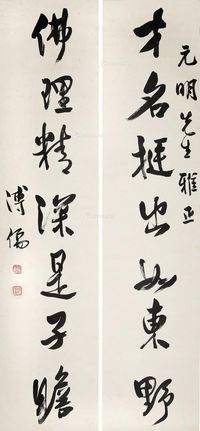 元明先生雅正
才名挺出如東野
佛理精深是子瞻
溥儒